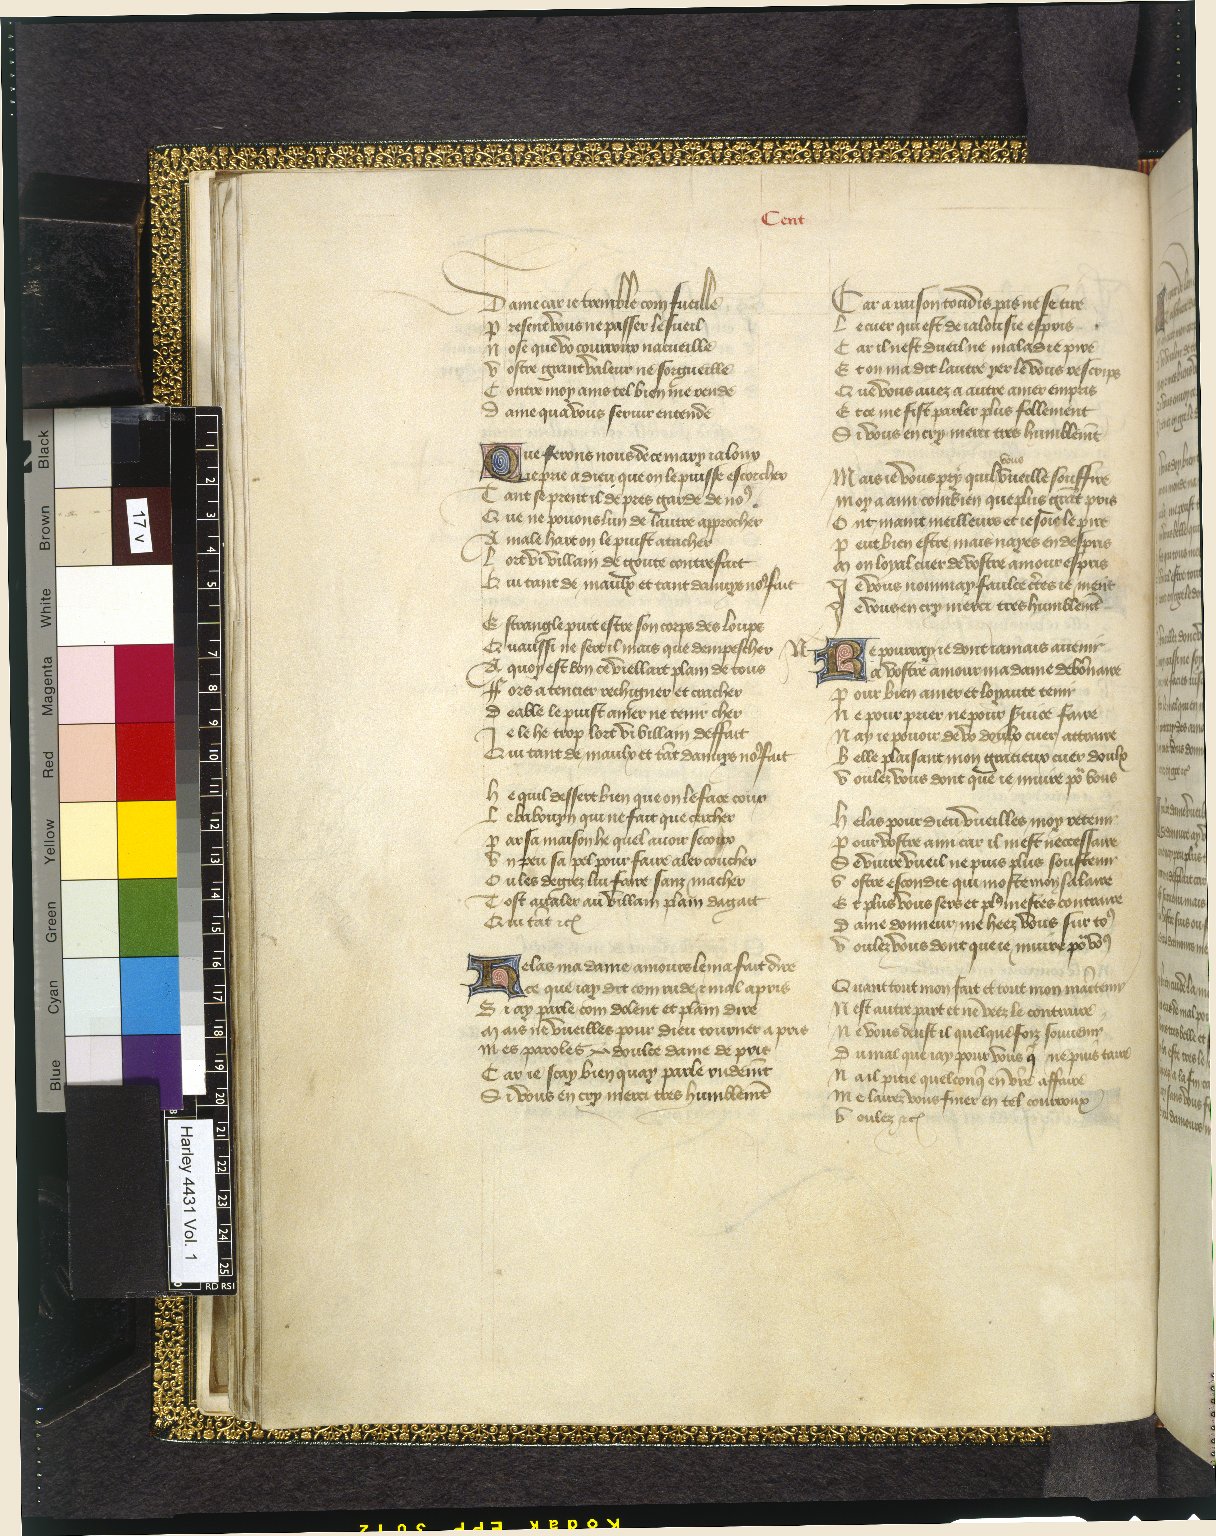 Cent
Dame car ie tremble com fueille
Present vous ne passer le sueil
Nose que vo courroux nacueille
Vostre grant valeur ne sorgueille
Contre moy ains tel bien me rende
Dame qua vous seruir entende
Que ferons nous de ce mary ialoux
Ie prie a dieu que on le puisse escorcher
Tant se prent il de pres garde de no9
Que ne pouons lun de lautre approcher
A male hart on le puist atacher
Lort vi villain de goute contrefait
Qui tant de maulx et tant danuys no9 fait
Estrangle puit estre son corps des loups
Quaussi ne sert il mais que dempescher
A quoy est bon ce viellart plain de tous
Fors a tencier rechigner et cracher
Deable le puist amer ne tenir cher
Ie le he trop lort vi villain deffait
Qui tant de maulx et tāt danuys no9 fait
He quil dessert bien que on le face coux
Le baboyn qui ne fait que cercher
Par sa maison he quel auoir secoux
Vn peu sa pel pour faire aler coucher
Ou les degrez lui faire sanz marcher
Tost aualer au villain plain dagait
Qui tāt etc
Helas ma dame amours lema fait dire
Ce que iay dit com rude et mal apris
Si ay parle com dolent et plain dire
Mais ne vueilles pour dieu tourner a pris
Mes paroles doulce dame de pris
Car ie scay bien quay parle rudemēt
Si vous en cry merci tres humblemēt
Car a raison toudis pas ne se tire
Le cuer qui est de ialousie espris
Car il nest dueil ne maladie pire
Et on ma dit lautre yer le vous rescrips
Que vous auez a autre amer empris
Et ce me fist parler plus follement
Si vous en cry merci tres humblemēt
vous
Mais ie vous pry quil vueille souffire
Moy a ami combien que plus grāt pris
Ont maint meilleurs et ie sois le pire
Peut bien estre mais nayes en despris
Mon loyal cuer de vostre amour espris
Ie vous nommay faulce certes ie ment
Ie vous en cry merci tres humblemēt
Ne pourray ie dont iamais auenir
A vostre amour ma dame debōnaire
Pour bien amer et loyaute tenir
Ne pour prier ne pour seruice faire
Nay ie pouoir de vo doulx cuer attraire
Belle plaisant mon gracieux cuer doulx
Voulez vous dont que ie muire po vous
Helas pour dieu vueilles moy retenir
Pour vostre ami car il mest neccessaire
Se viure vueil ne puis plus soustenir
Vostre escondit qui moste mon salaire
Et plus vous sers et pl9 mestes contraire
Dame donneur me heez vous sur to9
Voulez vous dont que ie muire po vo9
Quant tout mon fait et tout mon maintenir
Nest autre part et ne veez le contraire
Ne vous deust il quelque foiz souuenir
Du mal que iay pour vous q ne puis taire
Nail pitie quelconq en vre affaire
Me lairez vous finer en tel courroux
Voulez etc
17 v
Black
Brown
White
Magenta
Red
Yellow
Green
Cyan
Blue
Harley 4431 Vol. 1
1
2
3
4
5
7
8
9
10
11
12
13
14
15
16
17
18
19
20
21
22
23
24
25
Kodak EPP